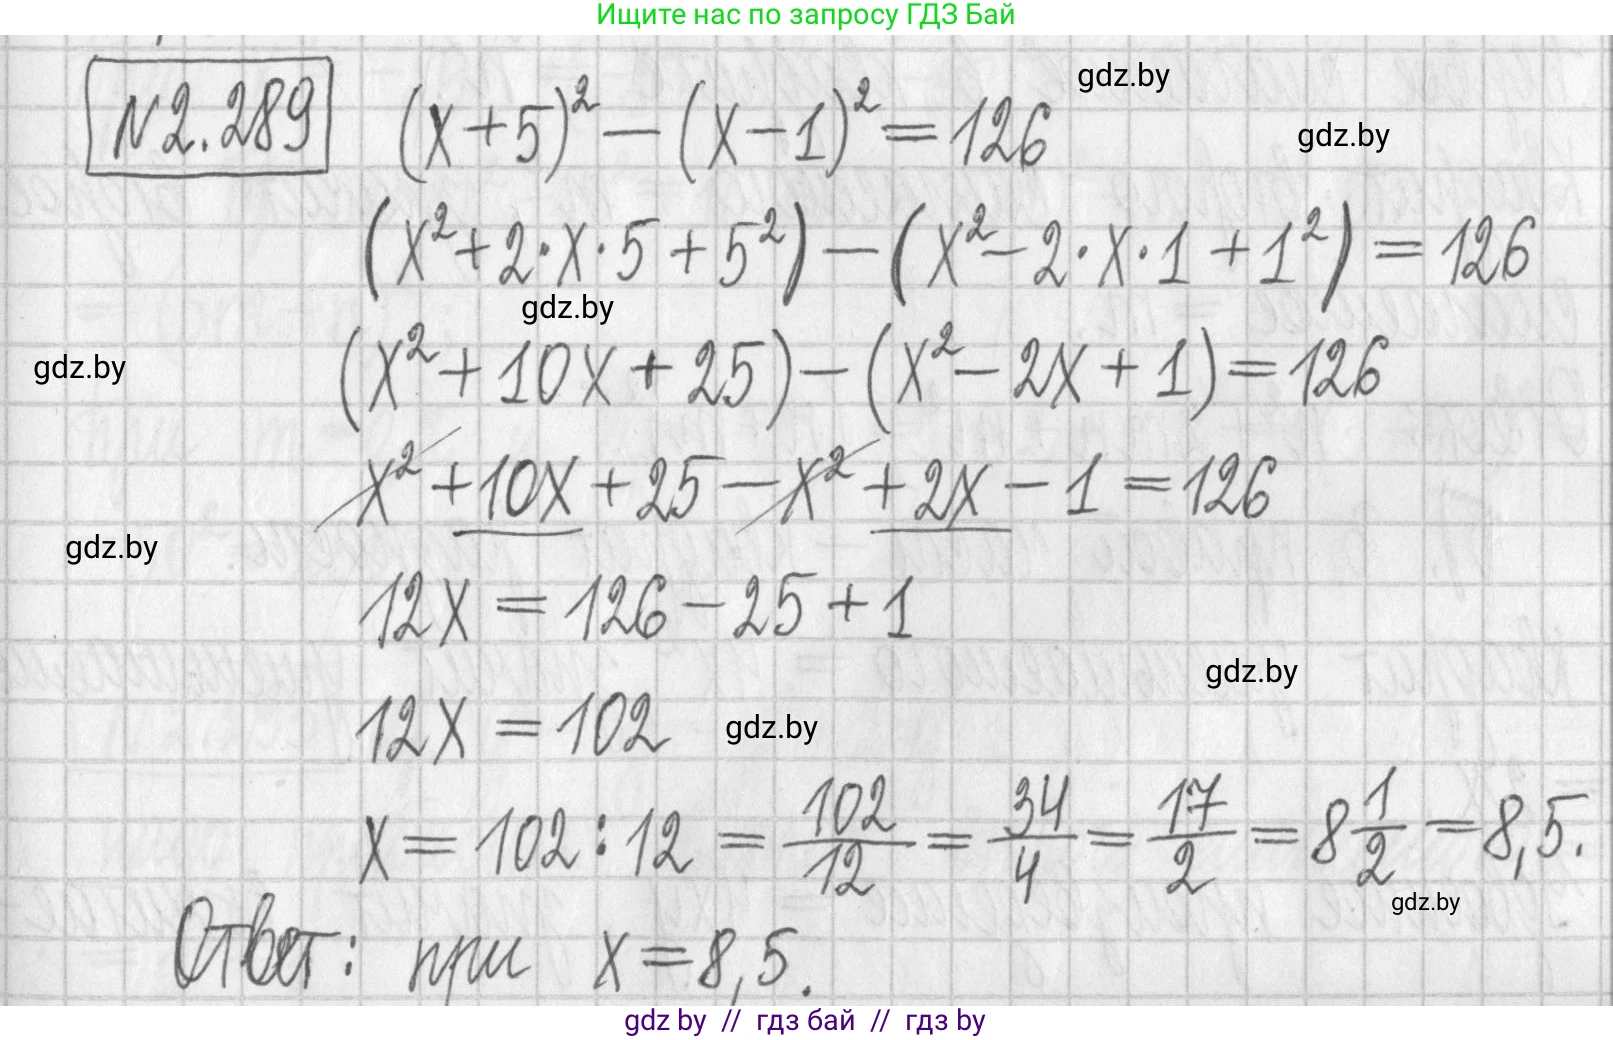 Ищите нас по запросу ГДЗ Бай
№2.289 (x+5)² − (x−1)² = 126
gdz.by
gdz.by
(x²+2·x·5+5²) − (x²−2·x·1+1²) = 126
gdz.by
(x²+10x+25) − (x²−2x+1) = 126
gdz.by
x²+10x+25−x²+2x−1 = 126
gdz.by
12x = 126−25+1
gdz.by
12x = 102
gdz.by
x = 102:12 = 102/12 = 34/4 = 17/2 = 8 1/2 = 8,5.
gdz.by
Ответ: при x=8,5.
gdz by // гдз бай // гдз by